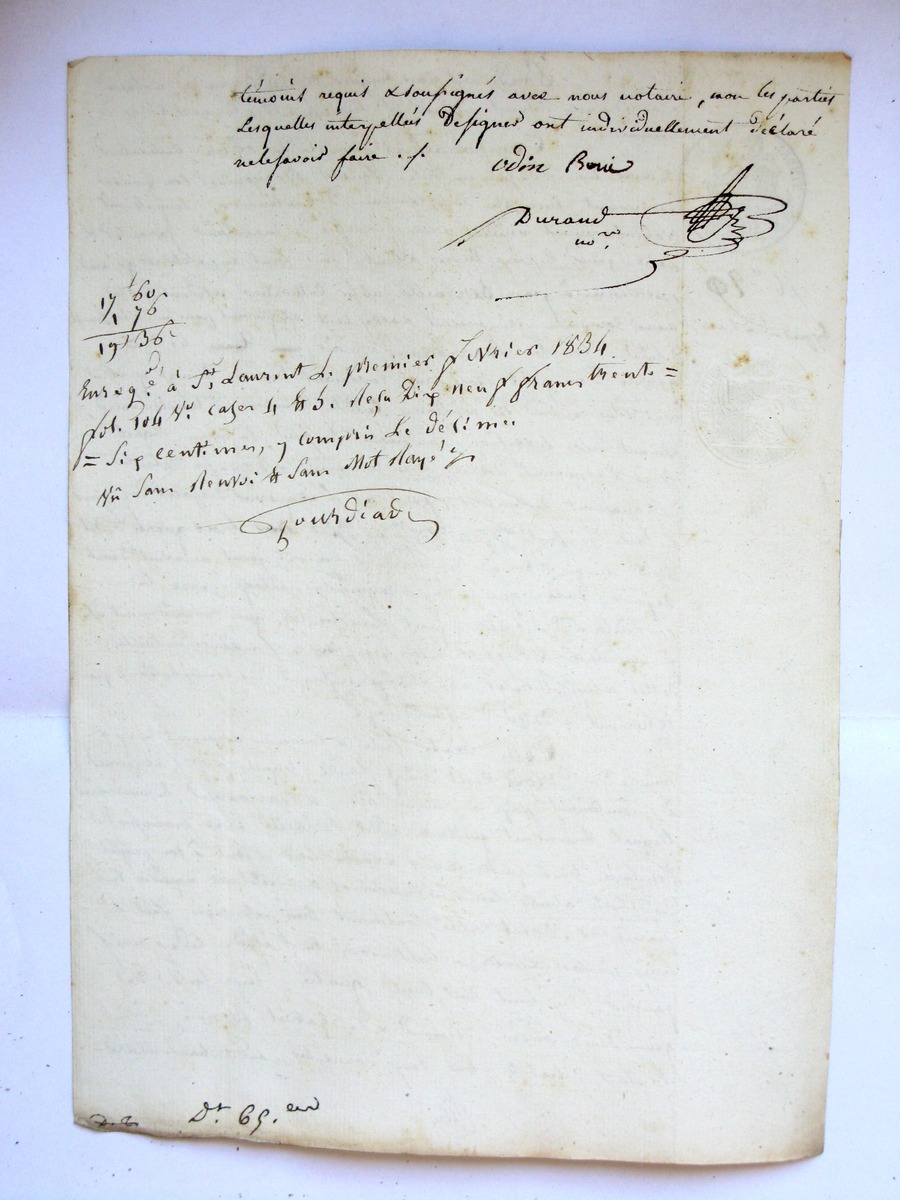 témoins requis & soussignés avec nous notaire, non les parties
Lesquelles interpellées de signer ont individuellement déclaré
ne le savoir faire ./.
odin
Durand
nore.
17 60
1 76
19 36
Enregé. à St. Laurent Le premier février 1834.
fol. 104 Vo. cases 4 & 5. Reçu Dix neuf francs trente =
= six centimes, y compris Le décime.
Vû Sans Renvoi & Sans Mot Rayé
Jourdiad
Dt. 65.